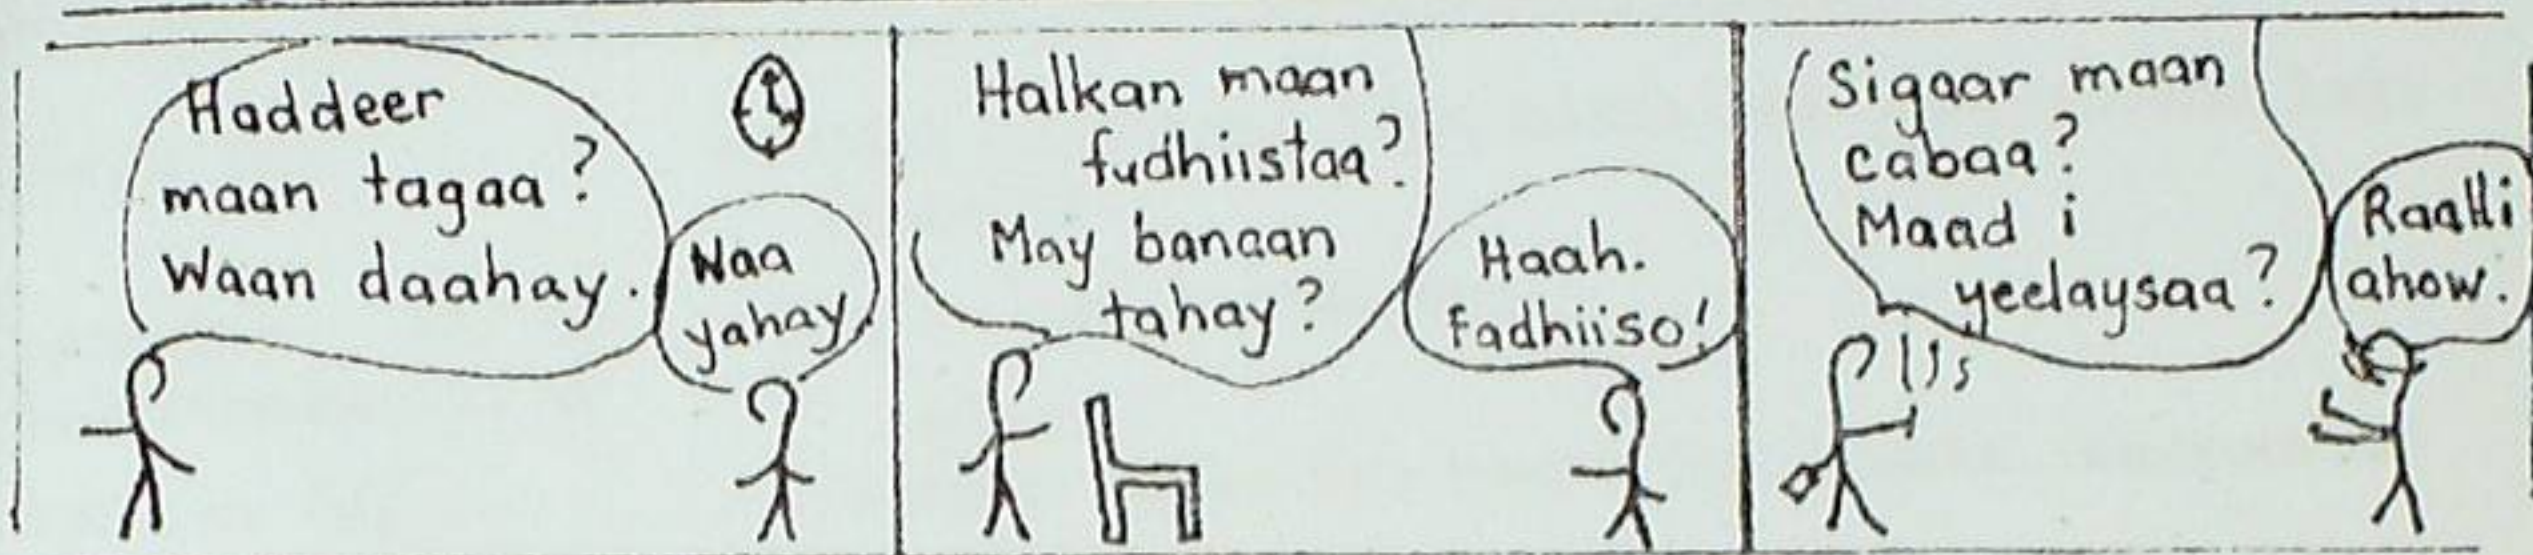 Haddeer
maan tagaa?
Waan daahay.
Waa
yahay
Halkan maan
fudhiistaa?
May banaan
tahay?
Haah.
Fadhiiso!
Sigaar maan
cabaa?
Maad i
yeelaysaa?
Raalli
ahow.